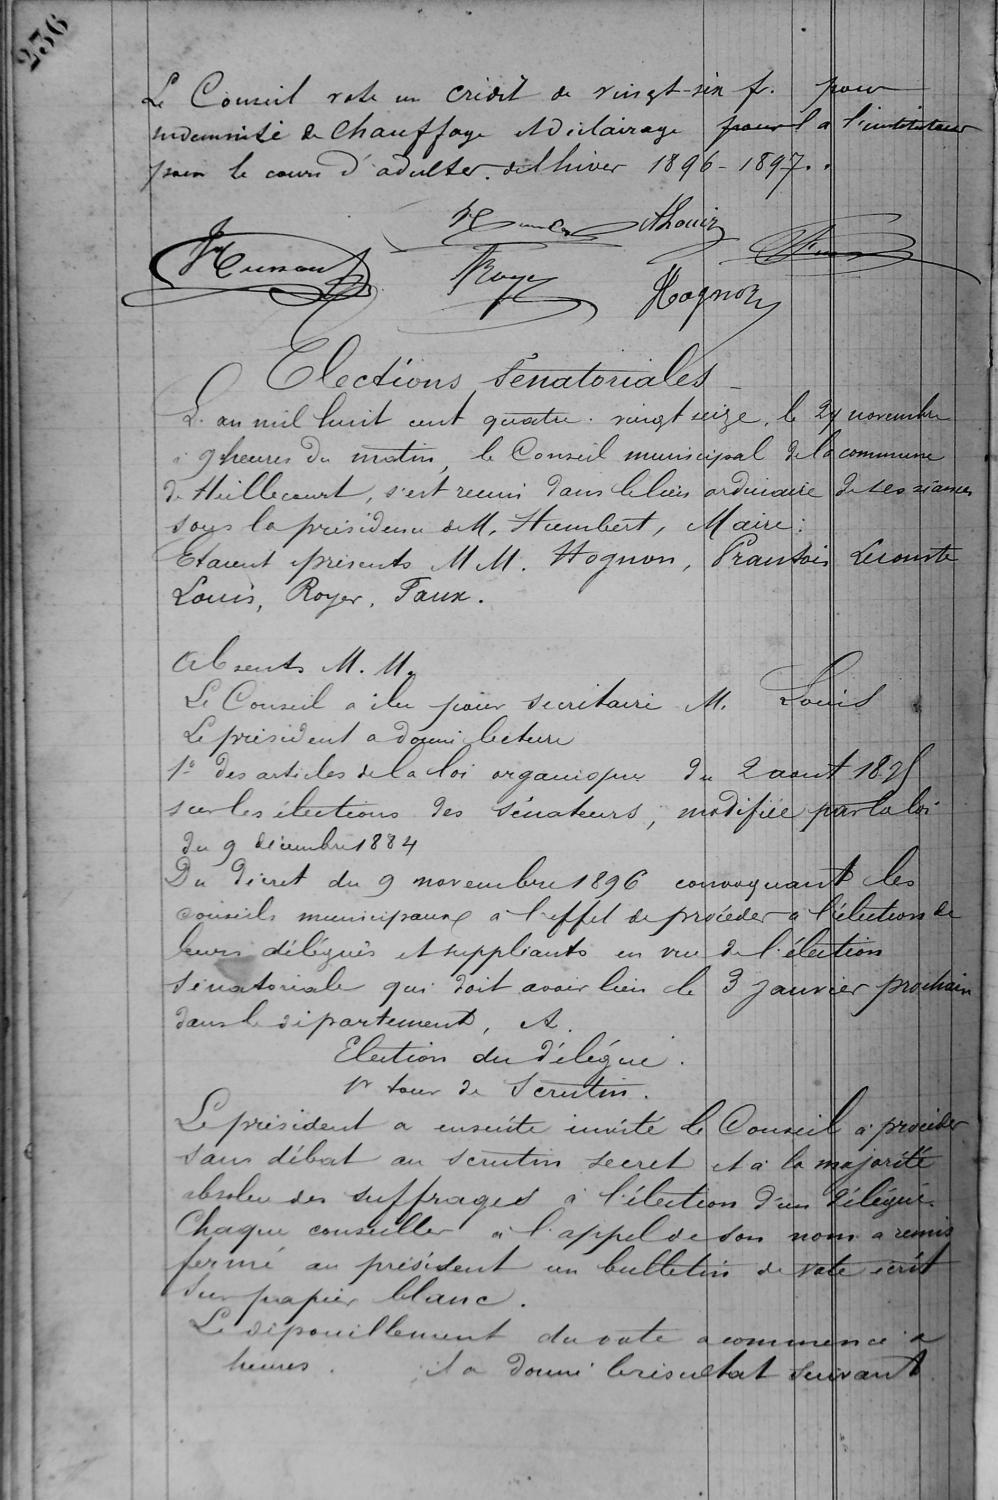 236
Le Conseil vote un crédit de vingt-six fr. pour
indemnité de chauffage et d'éclairage pour l a l'instituteur
pour le cours d'adultes de l'hiver 1896-1897.
ALouis
Royer
Hognon
Elections Sénatoriales
L'an mil huit cent quatre-vingt seize, le 29 novembre
à 9 heures du matin, le Conseil municipal de la commune
de Heillecourt, s'est reuni dans le lieu ordinaire de ses séances
sous la présidence de M. Humbert, Maire:
Etaient présents M M. Hognon, François Lecomte
Louis, Royer, Faux.
Absents M. M.
Le Conseil a élu pour secrétaire M. Louis
Le président a donné lecture
1º des articles de la loi organique du 2 aout 1875
sur les élections des Sénateurs, modifiée par la loi
du 9 décembre 1884
Du décret du 9 novembre 1896 convoquant les
conseils municipaux à l'effet de procéder à l'élection de
leurs délégués et suppléants en vue de l'élection
Sénatoriale qui doit avoir lieu le 3 janvier prochain
dans le département, et.
Election du délégué.
1er tour de Scrutin.
Le président a ensuite invité le Conseil à procéder
sans débat au scrutin secret et à la majorité
absolue des suffrages à l'élection d'un délégué.
Chaque conseiller à l'appel de son nom a remis
fermé au président un bulletin de vote écrit
sur papier blanc.
Le dépouillement du vote a commencé à
heures. il a donné le résultat suivant